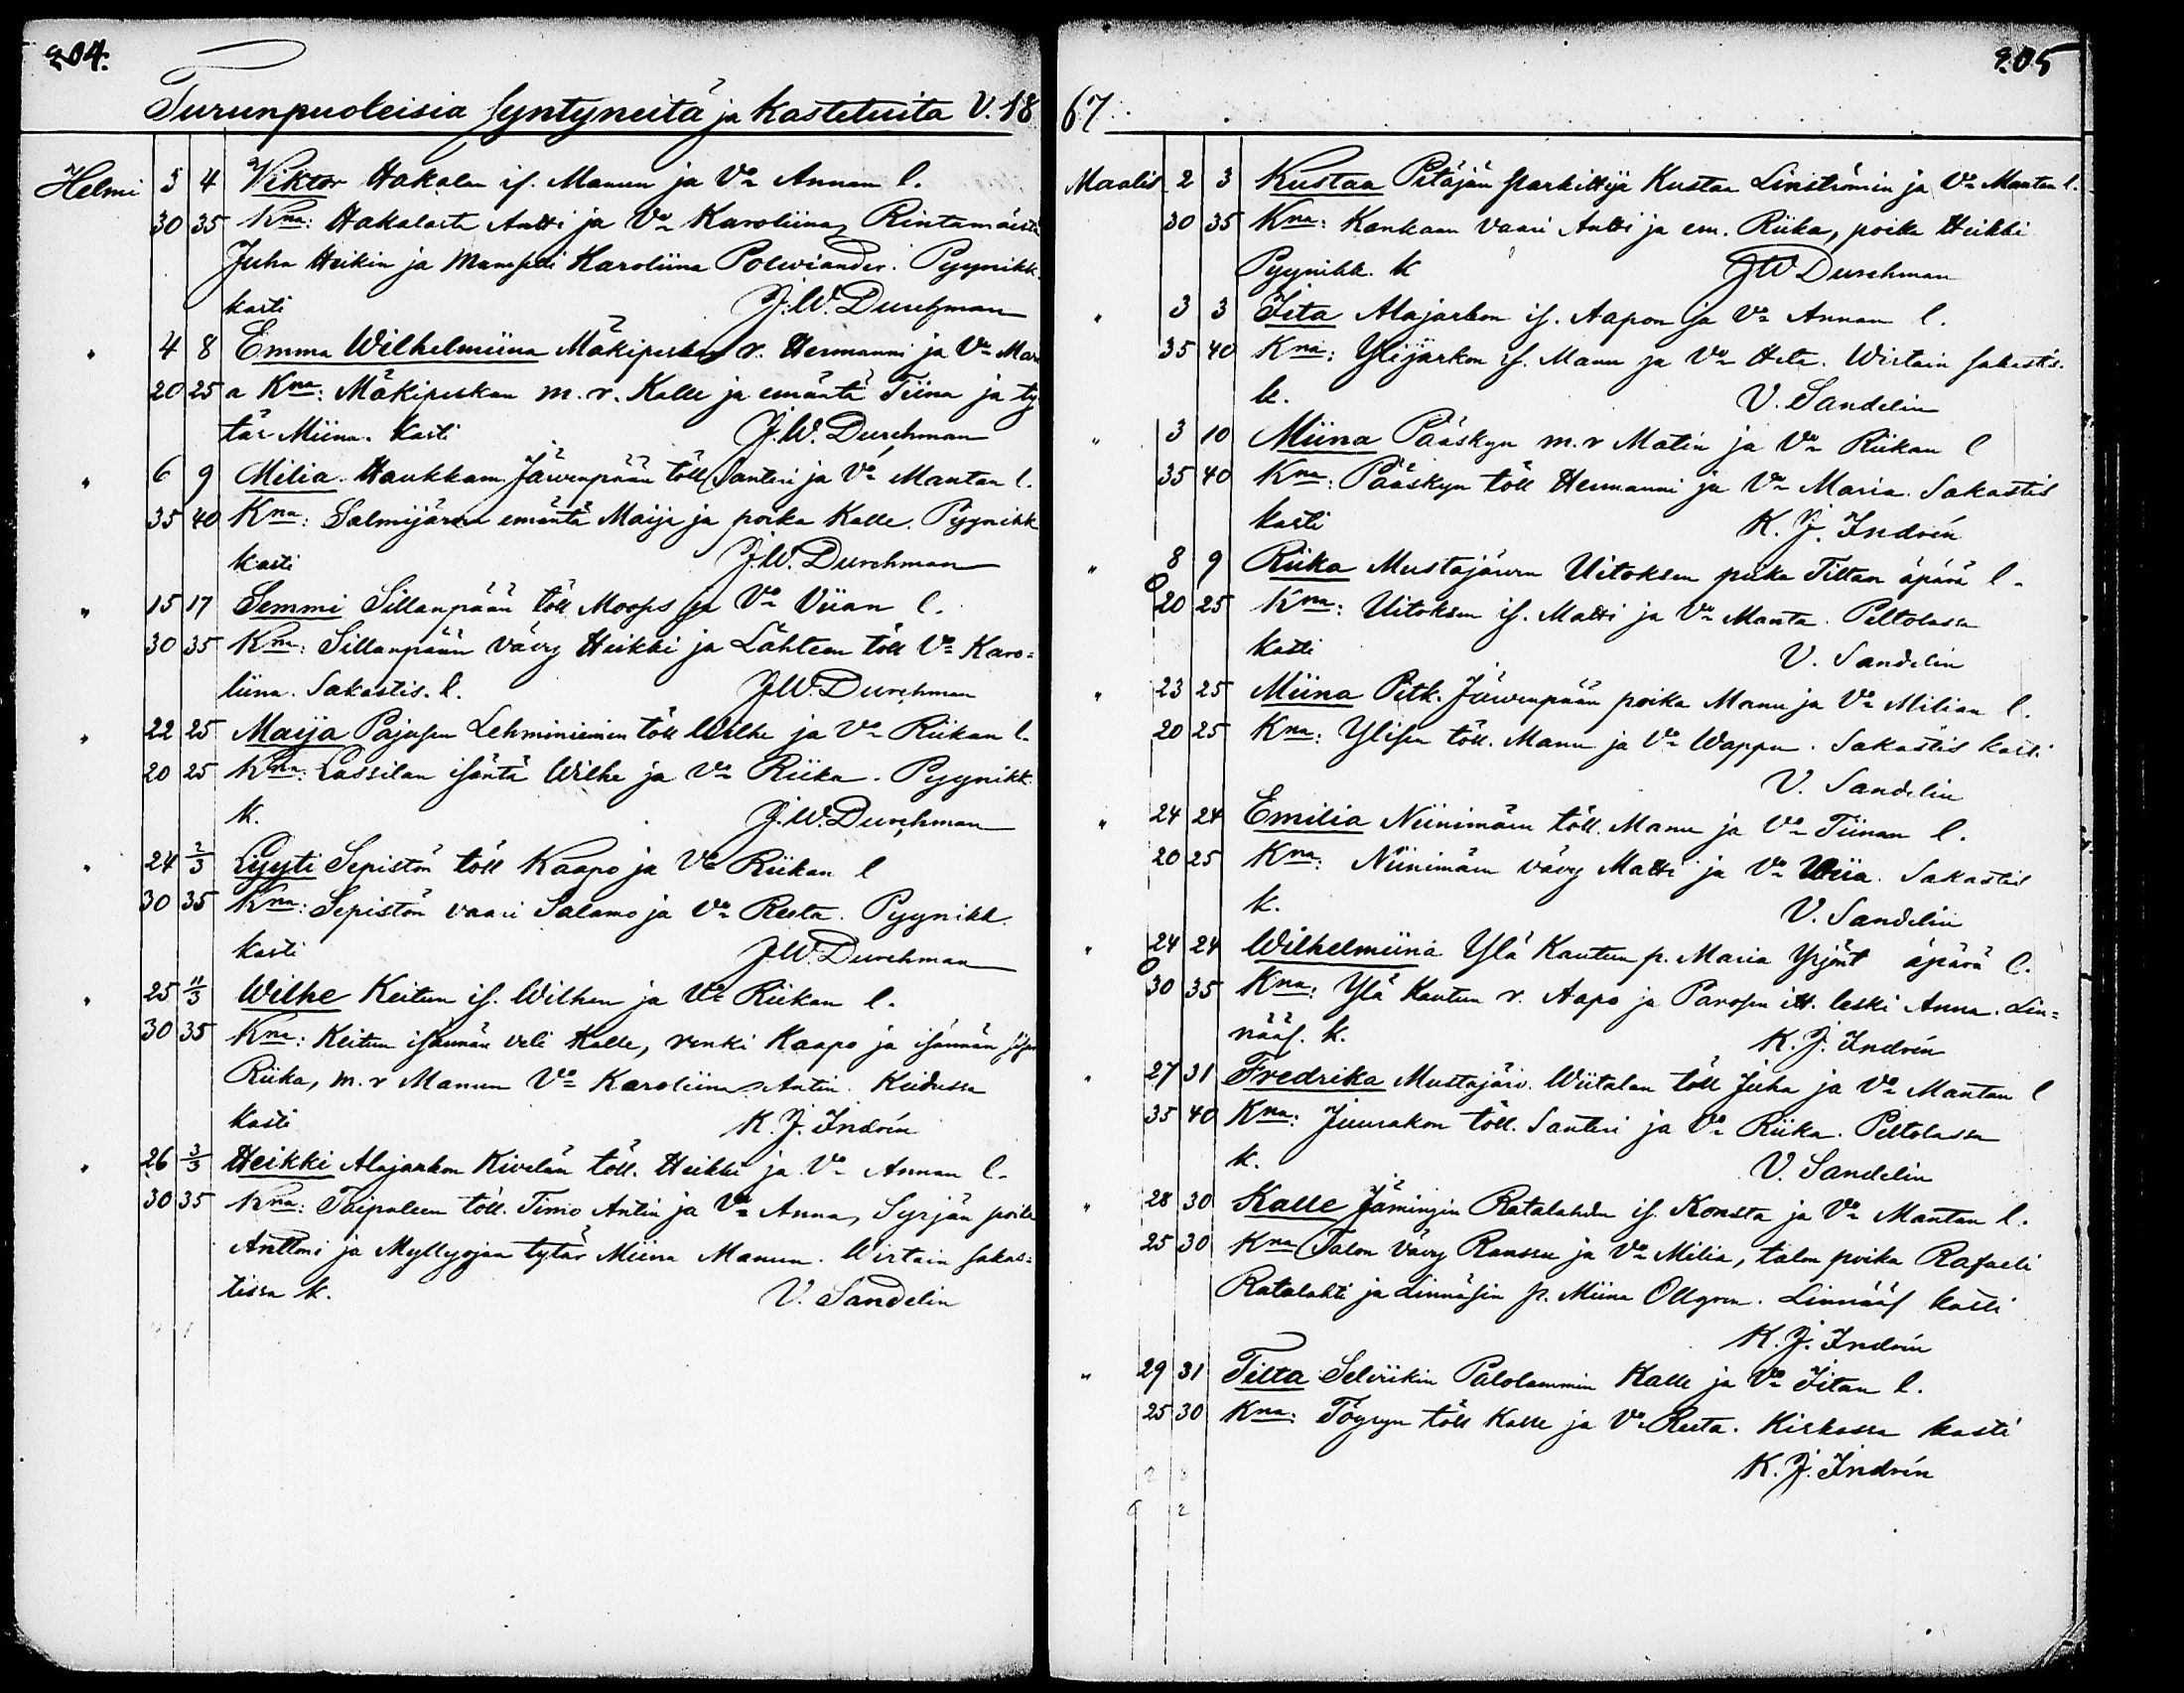 204.
Turunpuoleisia Syntyneitä ja kastetuita V. 18
Helmi 3 4 Viktor Hakalan is. Manun ja Vo Annan l.
30 35 Kna: Hakalasta Antti ja Vo Karoliina, Rintamäestä
Juha Heikin ja Mamseli Karoliina Polwiander. Pyynikk.
kasti J.W. Durchman
" 4 8 Emma Wilhelmiina Mäkipeskan r. Hermanni ja Vo Mari
20 25 a Kna: Mäkipeskan m. r. Kalle ja emäntä Tiina ja ty
tär Miina. kasti J.W. Durchman
" 6 9 Milia Haukkam. Jäwenpään töll Santeri ja Vo Mantan l.
35 40 Kna: Salmijärwen emäntä Maija ja poika Kalle. Pyynikk
kasti J.W. Durchman
" 15 17 Semmi Sillanpään töll Moops ja Vo Viian l.
30 35 Kna: Sillanpään vävy Heikki ja Lähteen töll Vo Karo=
liina. Sakastis. k. J.W. Durchman
" 22 25 Maija Pajusen Lehminiemen töll Wilhe ja Vo Riikan l.
20 25 Kna: Lassilan isäntä Wilhe ja Vo Riika. Pyynikk.
k. J.W. Durchman
" 24 2/3 Lyyti Sepistön töll Kaapo ja Vo Riikan l
30 35 Kna: Sepistön vaari Salamo ja Vo Reeta. Pyynikk.
kasti J.W. Durchman
" 25 11/3 Wilhe Keitun is. Wilhen ja Vo Riikan l.
30 35 Kna: Keitun isännän veli Kalle, renki Kaapo ja isännän sisar
Riika, m. r Manun Vo Karoliina Antin. Keidussa
kasti K. J. Indrén
" 26 3/3 Heikki Alajarkon Kivelän töll. Heikki ja Vo Annan l.
30 35 Kna: Taipaleen töll. Timo Antin ja Vo Anna, Syrjän poika
Anttoni ja Myllyojan tytär Miina Manun. Wirtain sakas=
tissa k. V. Sandelin
205
67.
Maalis 2 3 Kustaa Pitäjän parkittija Kustaa Linströmin ja Vo Mantan l.
30 35 Kna: Kankaan vaari Antti ja em. Riika, poika Heikki
Pyynikk. k J W Durchman
" 3 3 Iita Alajarkon is. Aapon ja Vo Annan l.
35 40 Kna: Ylijarkon is. Manu ja Vo Heta. Wirtain sakastis.
k. V. Sandelin
" 3 10 Miina Pääskyn m. r Matin ja Vo Riikan l
35 40 Kna: Pääskyn töll Hermanni ja Vo Maria. Sakastis
kasti K. J. Indrén
" 8 9 Riika Mustajärwen Uitoksen piika Tiltan äpärä l.
20 25 Kna: Uitoksen is. Matti ja Vo Manta. Peltolassa
kasti V. Sandelin
" 23 25 Miina Pitk. Jäwenpään poika Manu ja Vo Milian l.
20 25 Kna: Ylisen töll. Manu ja Vo Wappu. Sakastis kasti
V. Sandelin
" 24 24 Emilia Niinimäen töll. Manu ja Vo Tiinan l.
20 25 Kna: Niinimäen vävy Matti ja Vo Wiia. Sakastis
k. V. Sandelin
" 24 24 Wilhelmiina Ylä Kautun p. Maria Yrjönt äpärä l.
30 35 Kna: Ylä Kautun r. Aapo ja Parosen itt. leski Anna. Lin=
nääs. k. K. J. Indrén
" 27 31 Fredrika Mustajärv. Wiitalan töll Juha ja Vo Mantan l
35 40 Kna: Juurakon töll. Santeri ja Vo Riika. Peltolassa
k. V. Sandelin
" 28 30 Kalle Jämingin Ratalahden is. Konsta ja Vo Mantan l.
25 30 Kna Talon vävy Ranssu ja Vo Milia, talon poika Rafaeli
Ratalahti ja Linnäsin p. Miina Ollgren. Linnääs kasti
K. J. Indrén
" 29 31 Tilta Selviikin Palolammin Kalle ja Vo Iitan l.
25 30 Kna: Töyryn töll Kalle ja Vo Reeta. Kirkossa kasti
K. J. Indrén